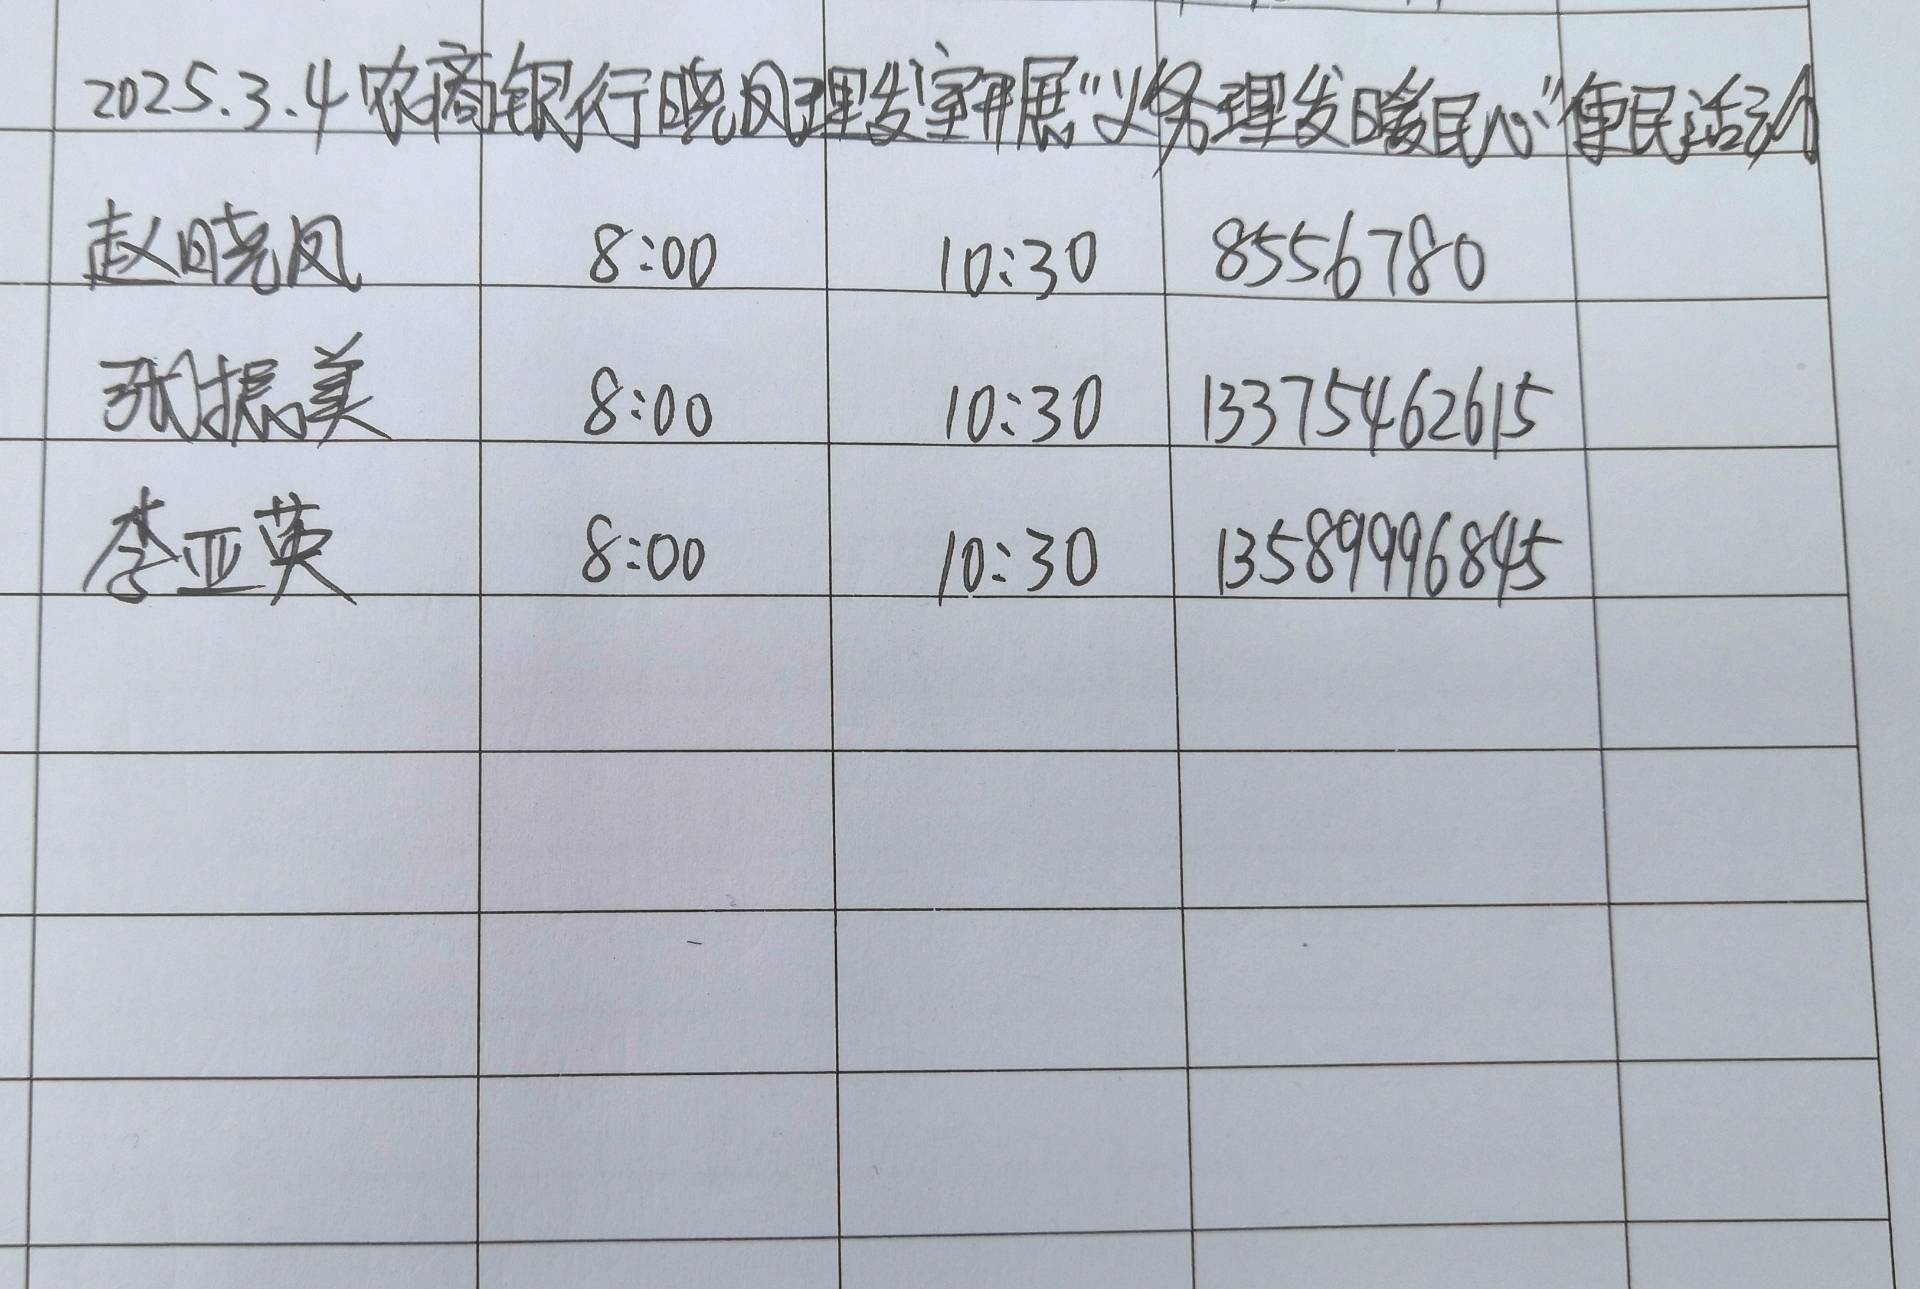 2025.3.4农商银行晓凤理发室开展“义务理发暖民心”便民活动
赵晓凤 8:00 10:30 8556780
张振美 8:00 10:30 13375462615
李亚英 8:00 10:30 13589996845